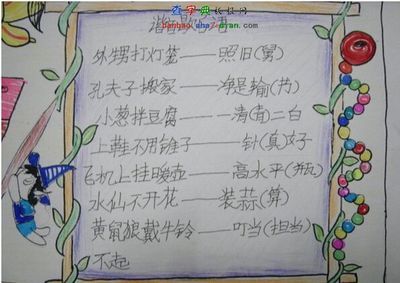 查字典
外甥打灯笼——照旧(舅)
孔夫子搬家——净是输(书)
小葱拌豆腐——一清(青)二白
上鞋不用锥子——针(真)好
飞机上挂暖壶——高水平(瓶)
水仙不开花——装蒜(算)
黄鼠狼戴牛铃——叮当(担当)
不起